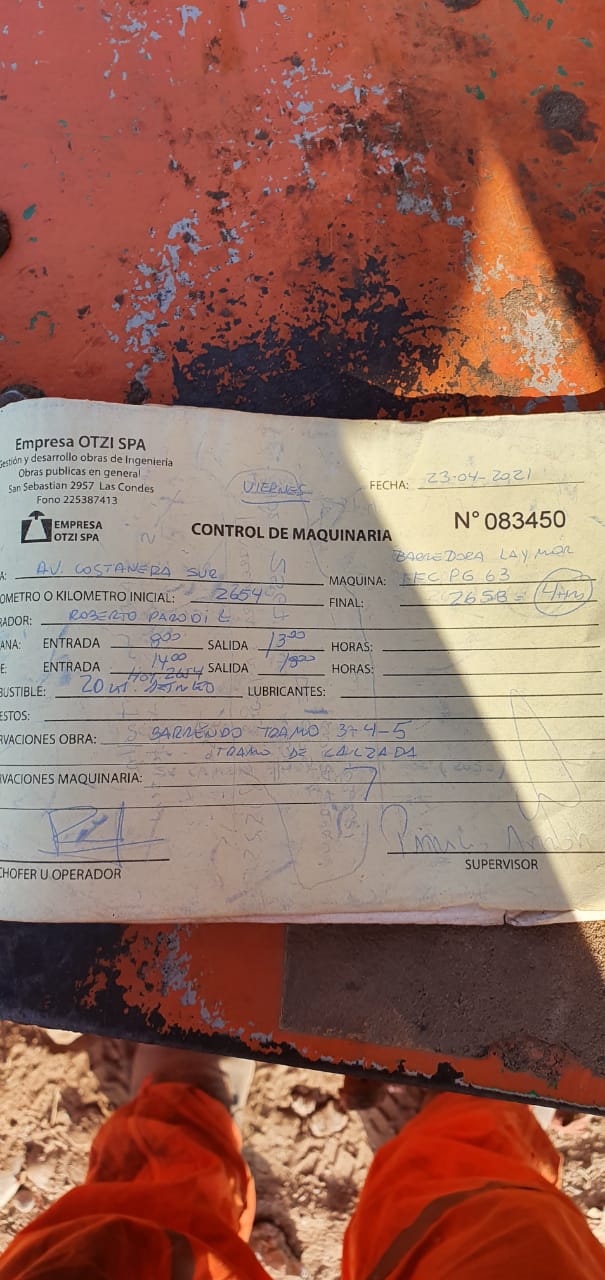 Empresa OTZI SPA
Gestión y desarrollo obras de Ingenieria
Obras publicas en general
San Sebastian 2957 Las Condes
Fono 225387413
EMPRESA
OTZI SPA
VIERNES
FECHA: 23-04-2021
CONTROL DE MAQUINARIA
N° 083450
BARREDORA LAYMOR
A: AV. COSTANERA SUR MAQUINA: PG 63
OMETRO O KILOMETRO INICIAL: 2654 FINAL: 2658 =
RADOR: ROBERTO PARODI
ANA: ENTRADA 8:00 SALIDA 13:00 HORAS:
E: ENTRADA 14:00 SALIDA HORAS:
2654
BUSTIBLE: 20 LUBRICANTES:
ESTOS:
RVACIONES OBRA: BARRENDO TRAMO 3-4-5
TRAMO DE CALZADA
RVACIONES MAQUINARIA:
CHOFER U OPERADOR
SUPERVISOR